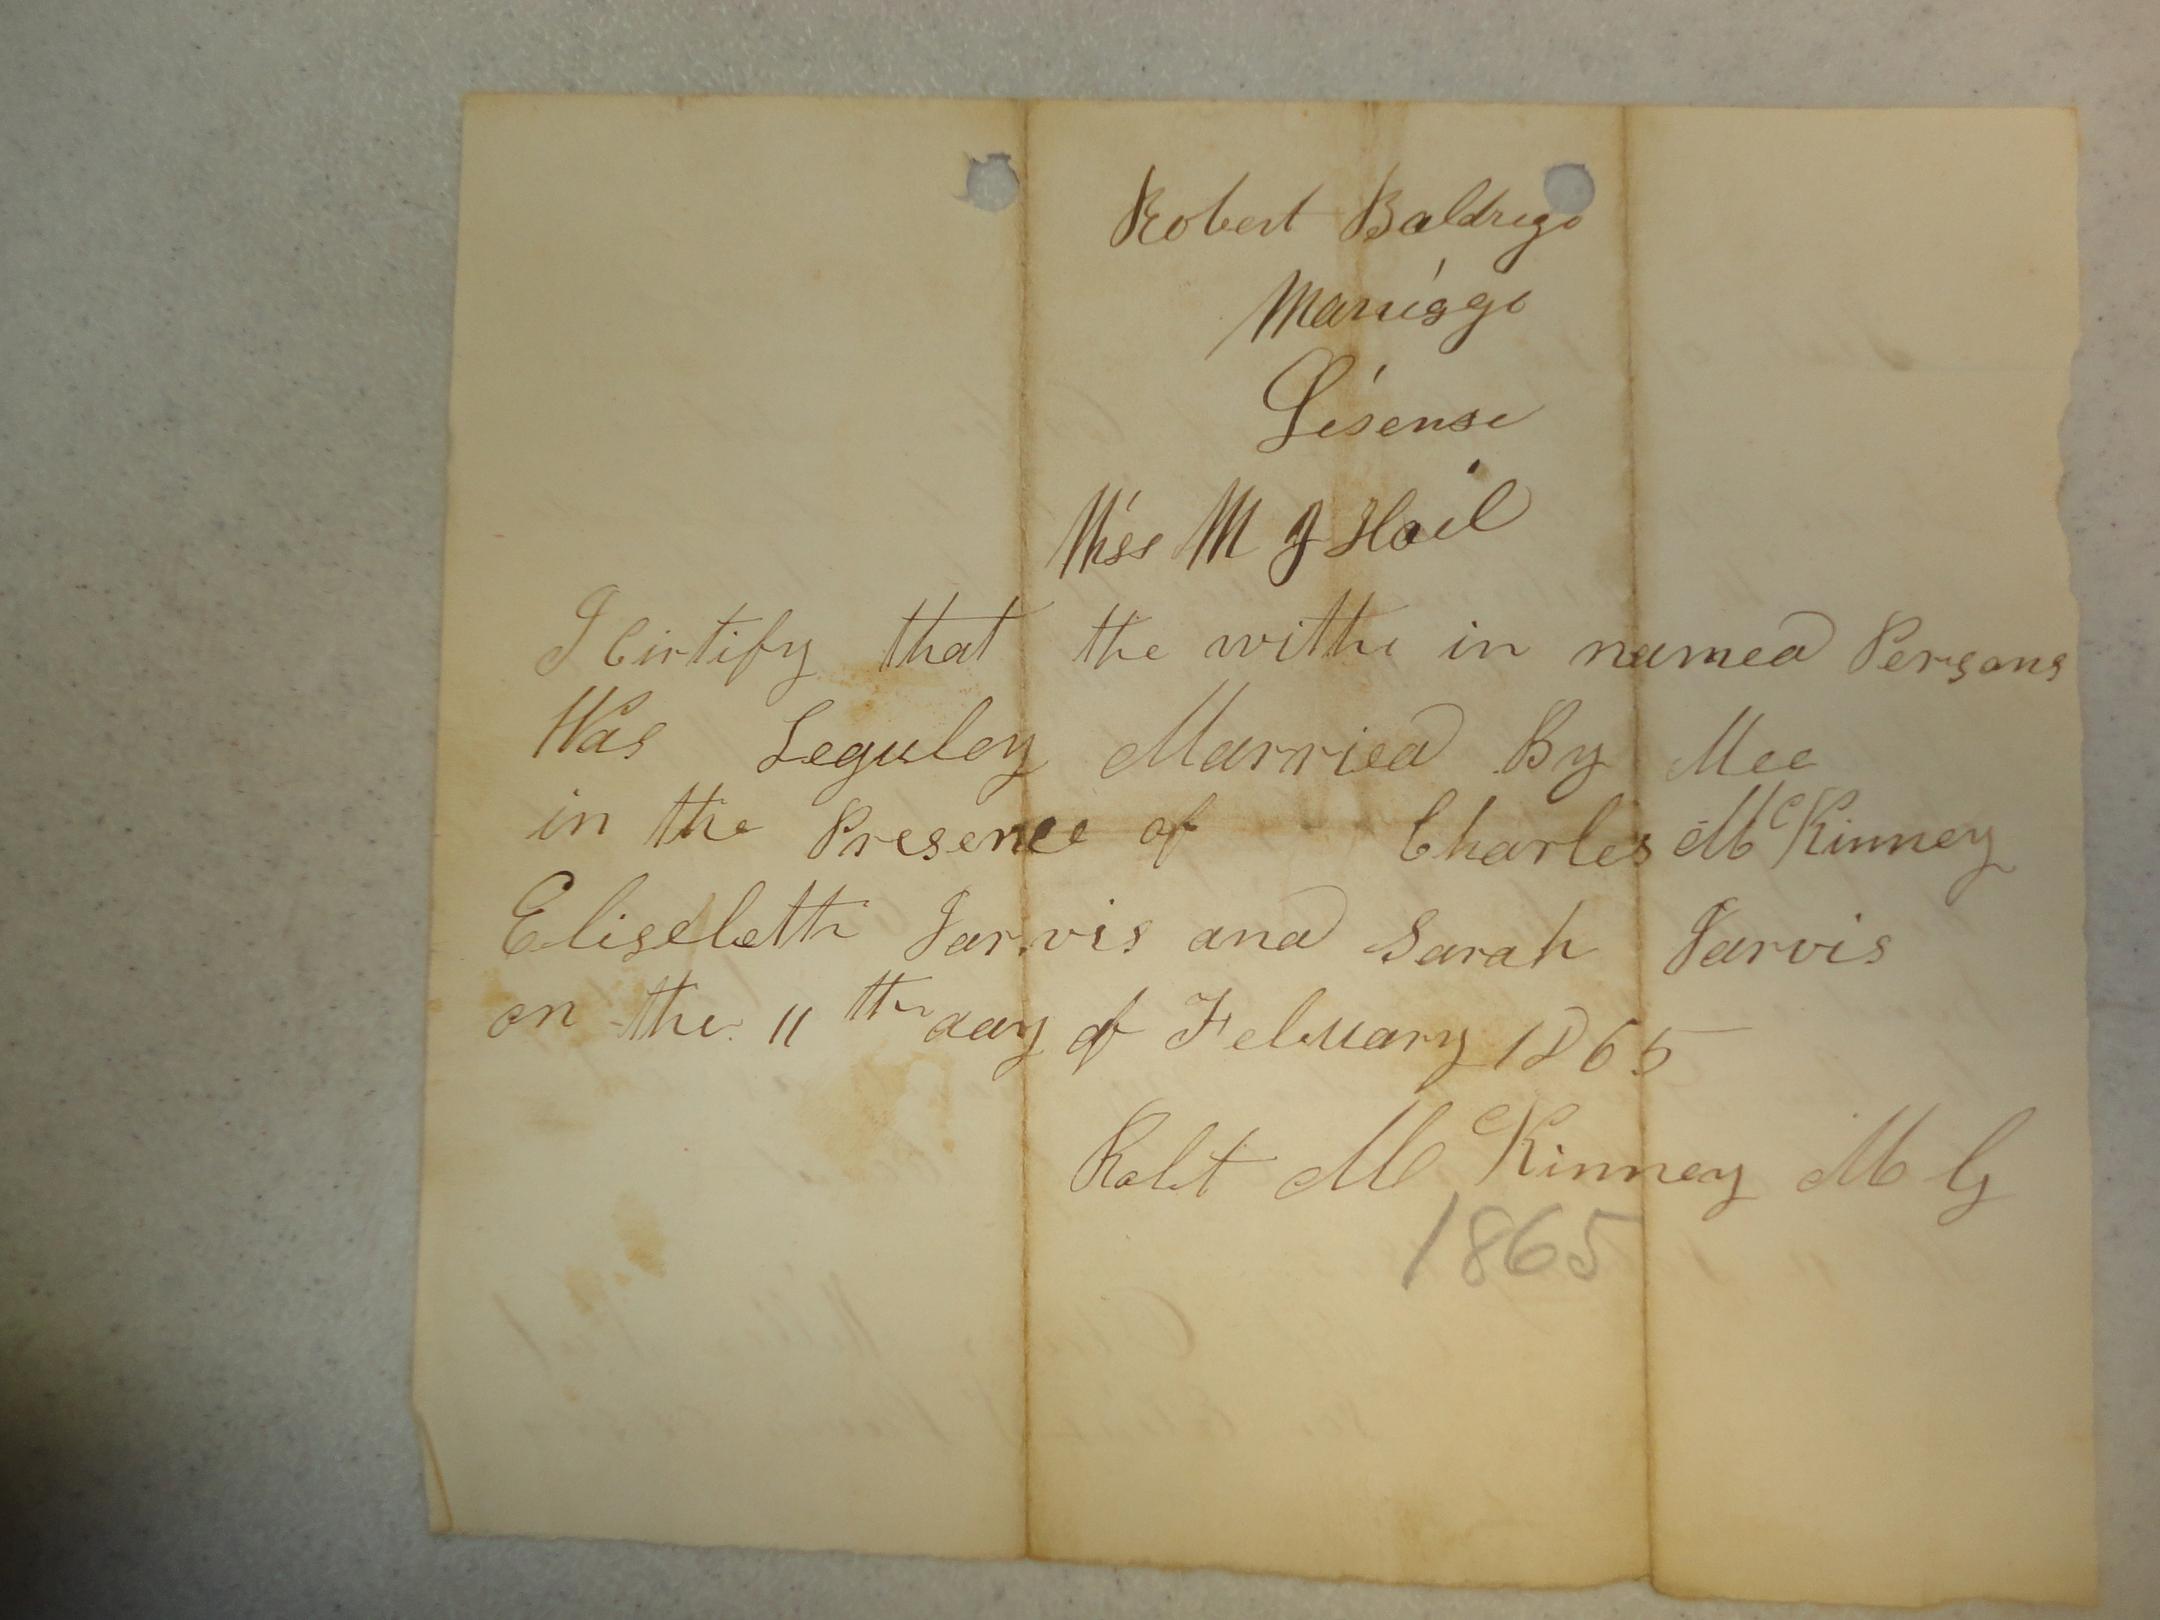 Robert Baldrige
Marriage
Lisense
Miss M J Hail
I Cirtify that the withe in named Persons
Was Leguley Married By Mee
in the Presence of Charles McKinney
Eliselbeth Jarvis and Sarah Jarvis
on the 11th day of Febuary 1865
Robt McKinney M G
1865